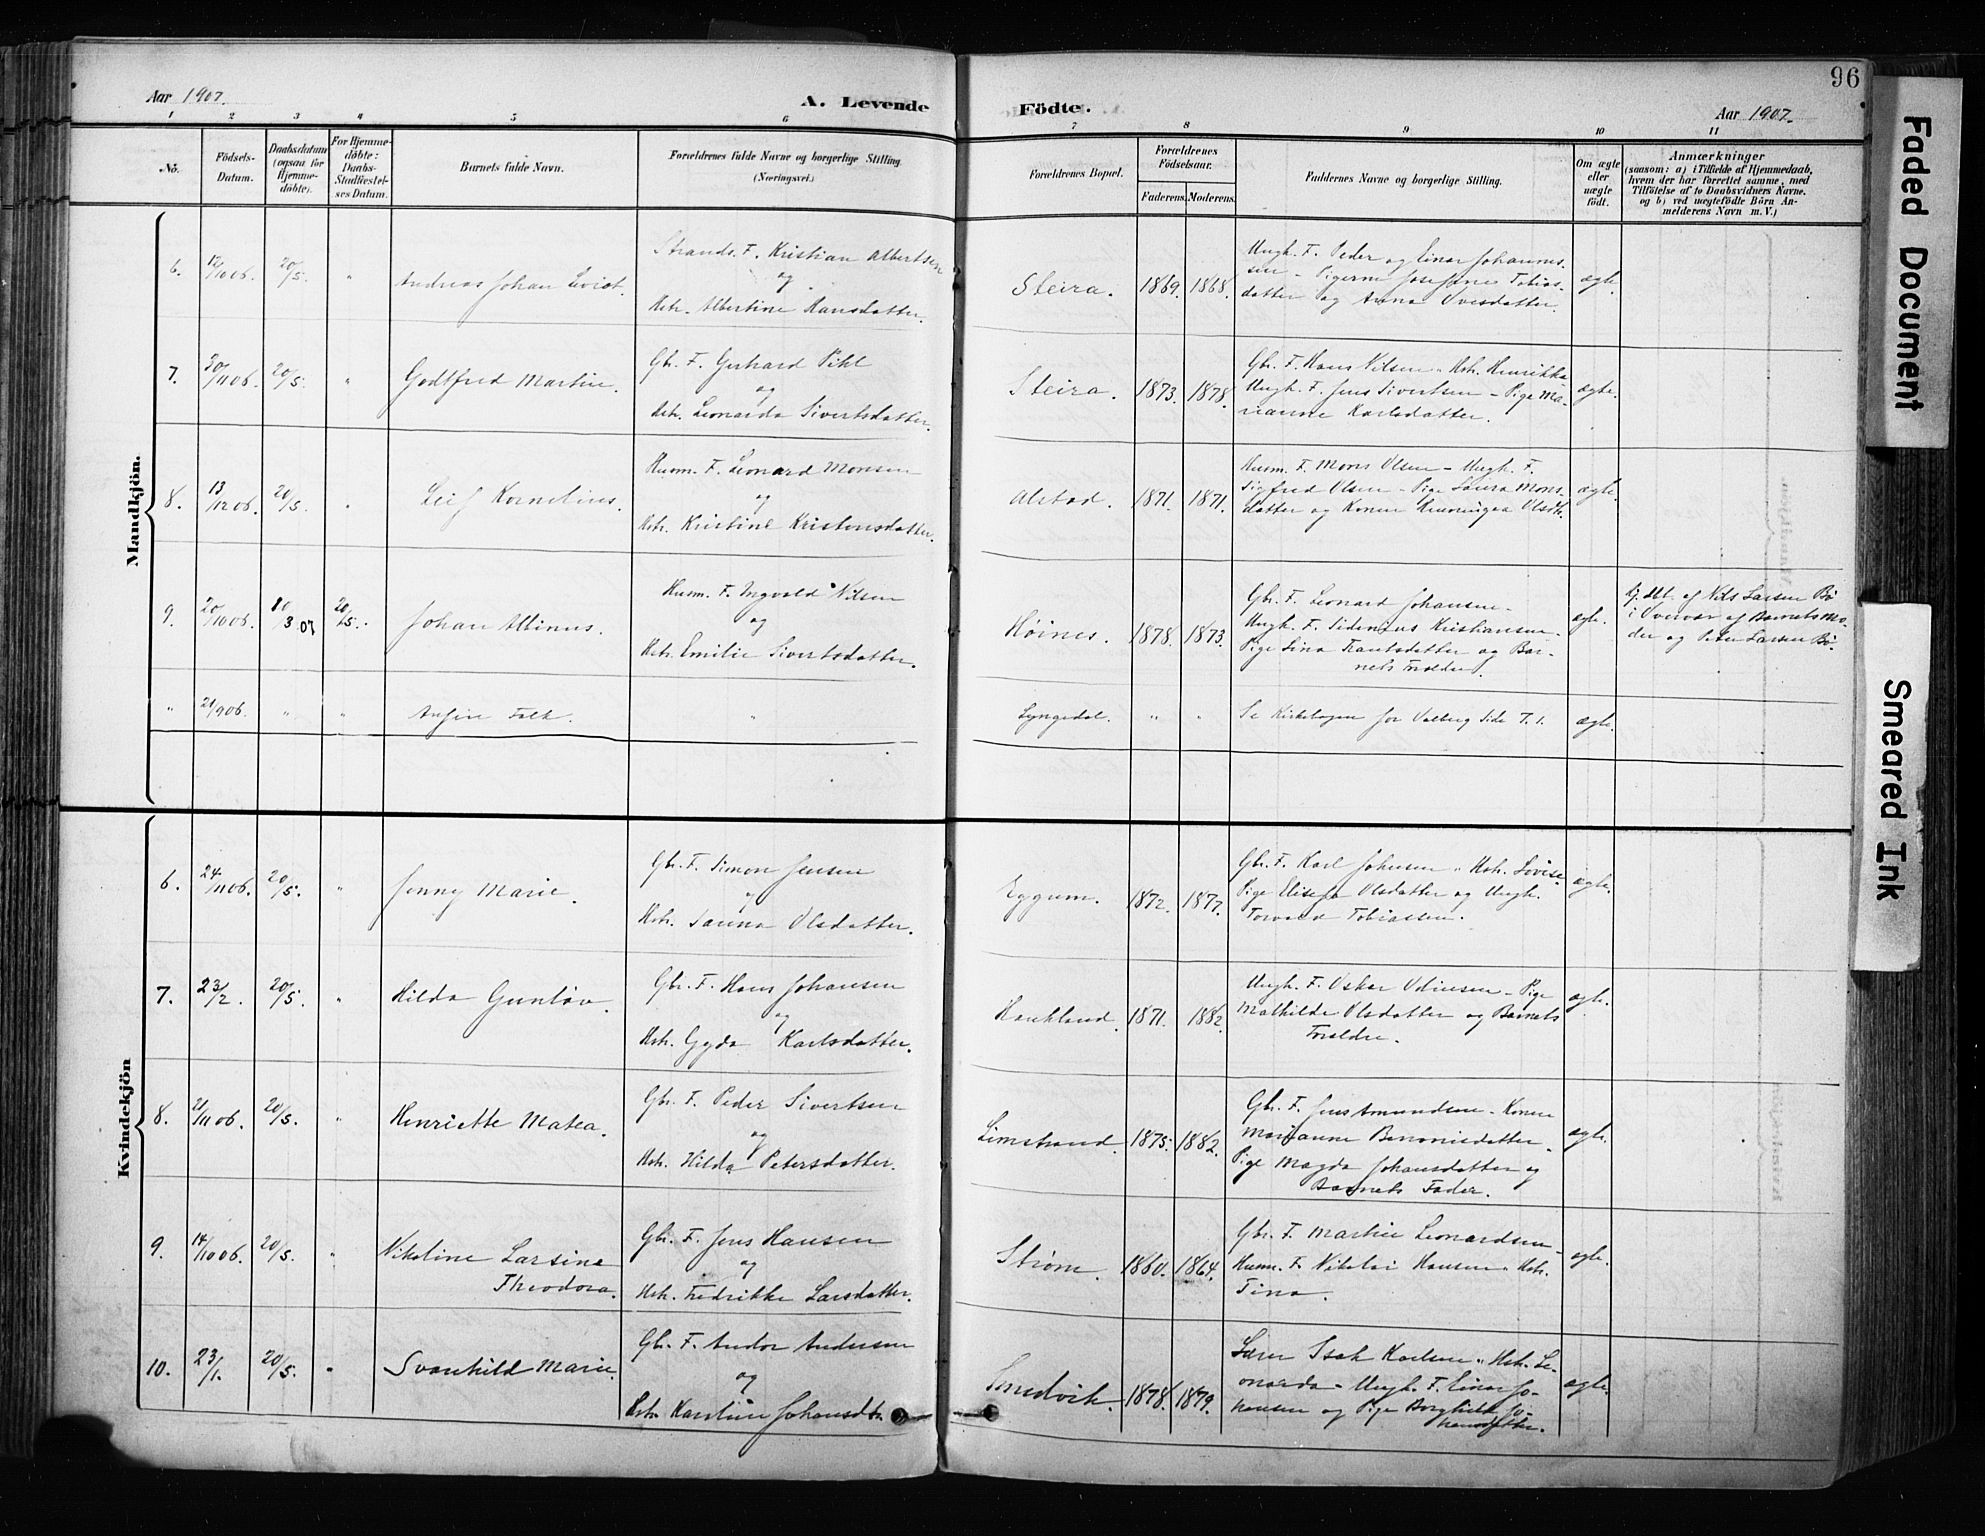 96
Aar 1907.
A. Levende
Födte.
Aar 1907.
1 2 3 4 5 6 7 8 9 10 11
No.
Födsels-
Datum.
Daabsdatum
(ogsaa for
Hjemme-
döbte).
For Hjemme-
døbte:
Daabs-
Stadfæstel-
ses Datum.
Barnets fulde Navn.
Forældrenes fulde Navne og borgerlige Stilling
(Næringsvei.)
Forældrenes Bopæl.
Forældrenes
Födselsaar.
Faderens. Moderens.
Faddernes Navne og borgerlige Stilling.
Om ægte
eller
uægte
födt.
Anmærkninger
(saasom: a) i Tilfælde af Hjemmedaab,
hvem der har forrettet samme, med
Tilföielse af to Daabsvidners Navne.
og b) ved uægtefödte Börn An-
melderens Navn m. V.)
Mandkjön.
6. 12/10 06. 20/5. " Andreas Johan
Strands. F. Kristian Albertsen
og
Hstr. Albertine Hansdatter.
Steira. 1869. 1868.
Ungk. F. Peder og Einar Johannes-
sen - Pigerne Josefine Tobias-
datter og Anna Ovesdatter.
ægte.
7. 30/11 06. 20/5. " Godtfred Martin.
Gbr. F. Gerhard Pihl
og
Hstr. Leonarda Sivertsdatter.
Steira. 1873. 1878.
Gbr. F. Hans Nilsen " Hstr. Henrikka
Ungk. F. Jens Sivertsen - Pige Ma-
rianne Karlsdatter.
ægte.
8. 13/12 06. 20/5. " Leif Kornelius.
Husm. F. Leonard Monsen
og
Hstr. Kristine Kristensdatter.
Alstad. 1871. 1871.
Husm. F. Mons Olsen - Ungk. F.
Sigfred Olsen - Pige Laura Mons-
datter og Konen Olsdtr.
ægte.
9. 20/10 06. 10/3 07 20/5. Johan Albinus.
Husm. F. Ingvald Nilsen
og
Hstr. Emilie Sivertsdatter.
Høines. 1878. 1873.
Gbr. F. Leonard Johansen -
Ungk. F. Sidenius Kristiansen -
Pige Lina Frantsdatter og Bar-
nets Forældre.
ægte.
Hj. dbt. af Nils Larsen Bø
i Overvær af Barnets Mo-
der og Peter Larsen Bø.
" 21/9 06. " " Anfin Falk. "
Lyngedal. " "
Se Kirkebogen for Valberg Side 7. 1.
ægte.
Kvindekjön
6. 24/11 06. 20/5. " Jenny Marie.
Gbr. F. Simon Jensen
og
Hstr. Laurna Olsdatter.
Eggum. 1872. 1877.
Gbr. F. Karl Johnsen " Hstr. Lovise
Pige Elisefa Olsdatter og Ungk.
Torvald Tobiassen.
ægte.
7. 23/2. 20/5. " Hilda Gunløv.
Gbr. F. Hans Johansen
og
Hstr. Gyda Karlsdatter.
Haukland. 1871. 1882.
Ungk. F. Oskar Odinsen - Pige
Mathilde Olsdatter og Barnets
Forældre.
ægte.
8. 21/11 06. 20/5. " Henriette Matea.
Gbr. F. Peder Sivertsen
og
Hstr. Hilda Petersdatter.
Limstrand. 1875. 1882.
Gbr. F. Jens Amundsen - Konen
Marianne Benonisdatter -
Pige Magda Johansdatter og
Barnets Fader.
ægte.
9. 14/10 06. 20/5. " Nikoline Larsine
Theodora.
Gbr. F. Jens Hansen
og
Hstr. Fredrikke Larsdatter.
Strøm. 1860. 1864.
Gbr. F. Martin Leonardsen -
Husm. F. Nikolai Hansen " Hstr.
Tina.
ægte.
10. 23/1. 20/5. " Svanhild Marie.
Gbr. F. Andor Andersen
og
Hstr. Karoline Johansdtr.
Smedvik. 1878. 1879.
Lærer Isak Karlsen " Hstr. Le-
onarda - Ungk. F. Einar Jo-
hansen og Pige Borghild Jo-
hansdatter.
ægte.
Faded Document
Smeared Ink